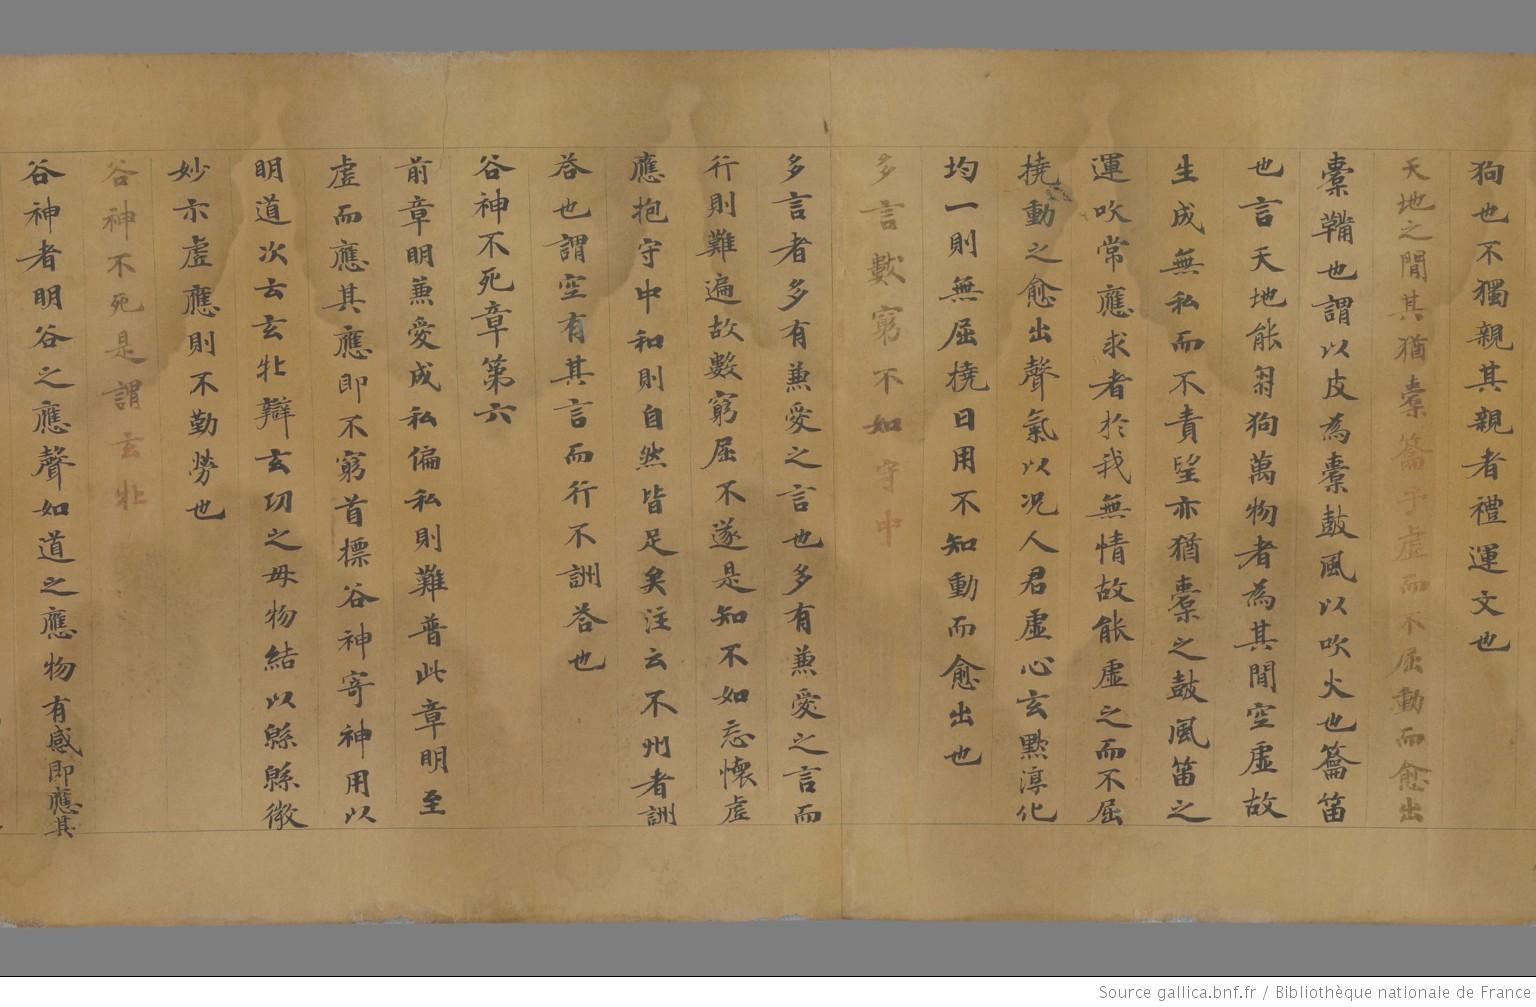 狗也不獨親其親者禮運文也
天地之閒其猶橐籥乎虛而不屈動而愈出
橐鞴也謂以皮為橐鼓風以吹火也籥笛
也言天地能芻狗萬物者為其閒空虛故
生成無私而不責望亦猶橐之鼓風笛之
運吹常應求者於我無情故能虛之而不屈
撓動之愈出聲氣以况人君虛心玄默淳化
均一則無屈撓日用不知動而愈出也
多言數窮不如守中
多言者多有兼愛之言也多有兼愛之言而
行則難遍故數窮屈不遂是知不如忘懷虛
應抱守中和則自然皆足矣注云不州者詶
荅也謂空有其言而行不詶荅也
谷神不死章第六
前章明兼愛成私偏私則難普此章明至
虛而應其應即不窮首標谷神寄神用以
明道次云玄牝辯玄功之母物結以緜緜微
妙示虛應則不勤勞也
谷神不死是謂玄牝
谷神者明谷之應聲如道之應物有感即應其
Source gallica.bnf.fr / Bibliothèque nationale de France